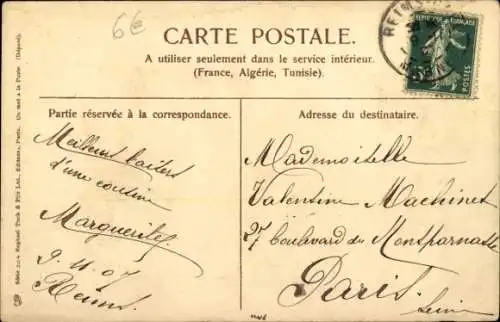 6€
CARTE POSTALE.
A utiliser seulement dans le service intérieur.
(France, Algérie, Tunisie).
REPUBLIQUE FRANÇAISE
POSTES
REIMS
Partie réservée à la correspondance.
Adresse du destinataire.
Meilleurs baisers
d'une cousine
Marguerite
9.11.07
Reims
Mademoiselle
Valentine Machinet
27 boulevard du Montparnasse
Paris
Seine
Raphael Tuck & Fils Ltd., Editeurs, Paris. Un mot à la Poste. (Déposé).